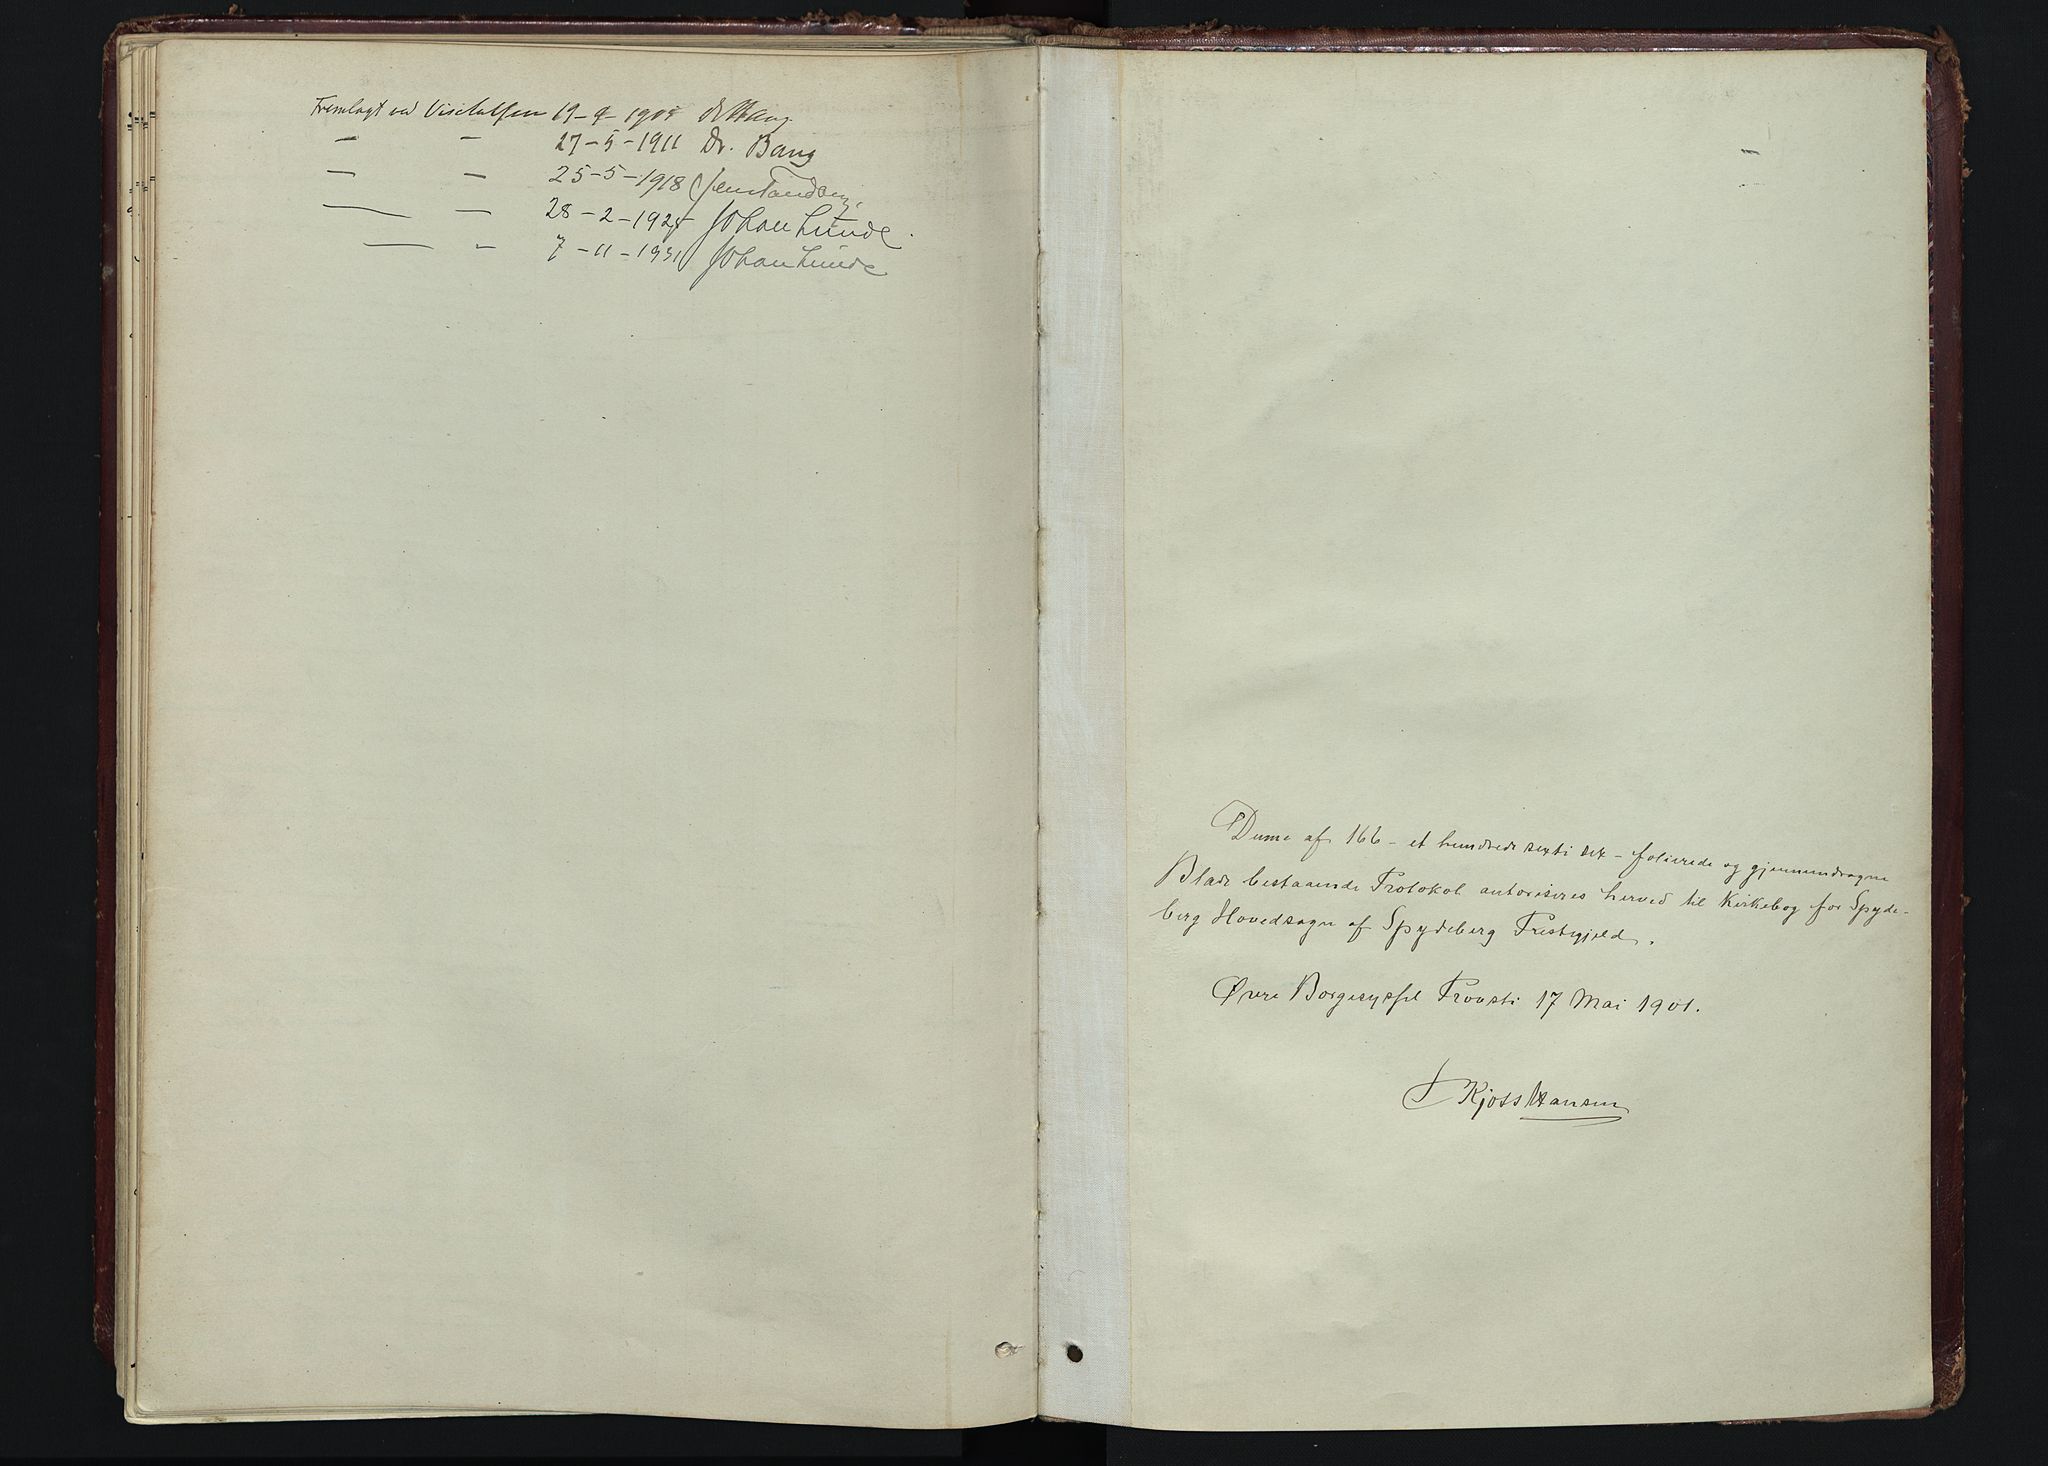 Fremlagt ved Visitatsen 19-9-1905
— — 27-5-1911 Dr. Bang
— — 25-5-1918 Jens Tandberg.
— — 28-2-1925 Johan Lunde.
— — 7-11-1931 Johan Lunde
Denne af 166 - et hundrede sexti sex - folierede og gjennemdragne
Blade bestaaende Protokol autoriseres herved til Kirkebog for Spyde-
berg Hovedsogn af Spydeberg Prestegjeld.
Øvre Borgesyssel Provsti 17 Mai 1901.
Kjoss Hansen